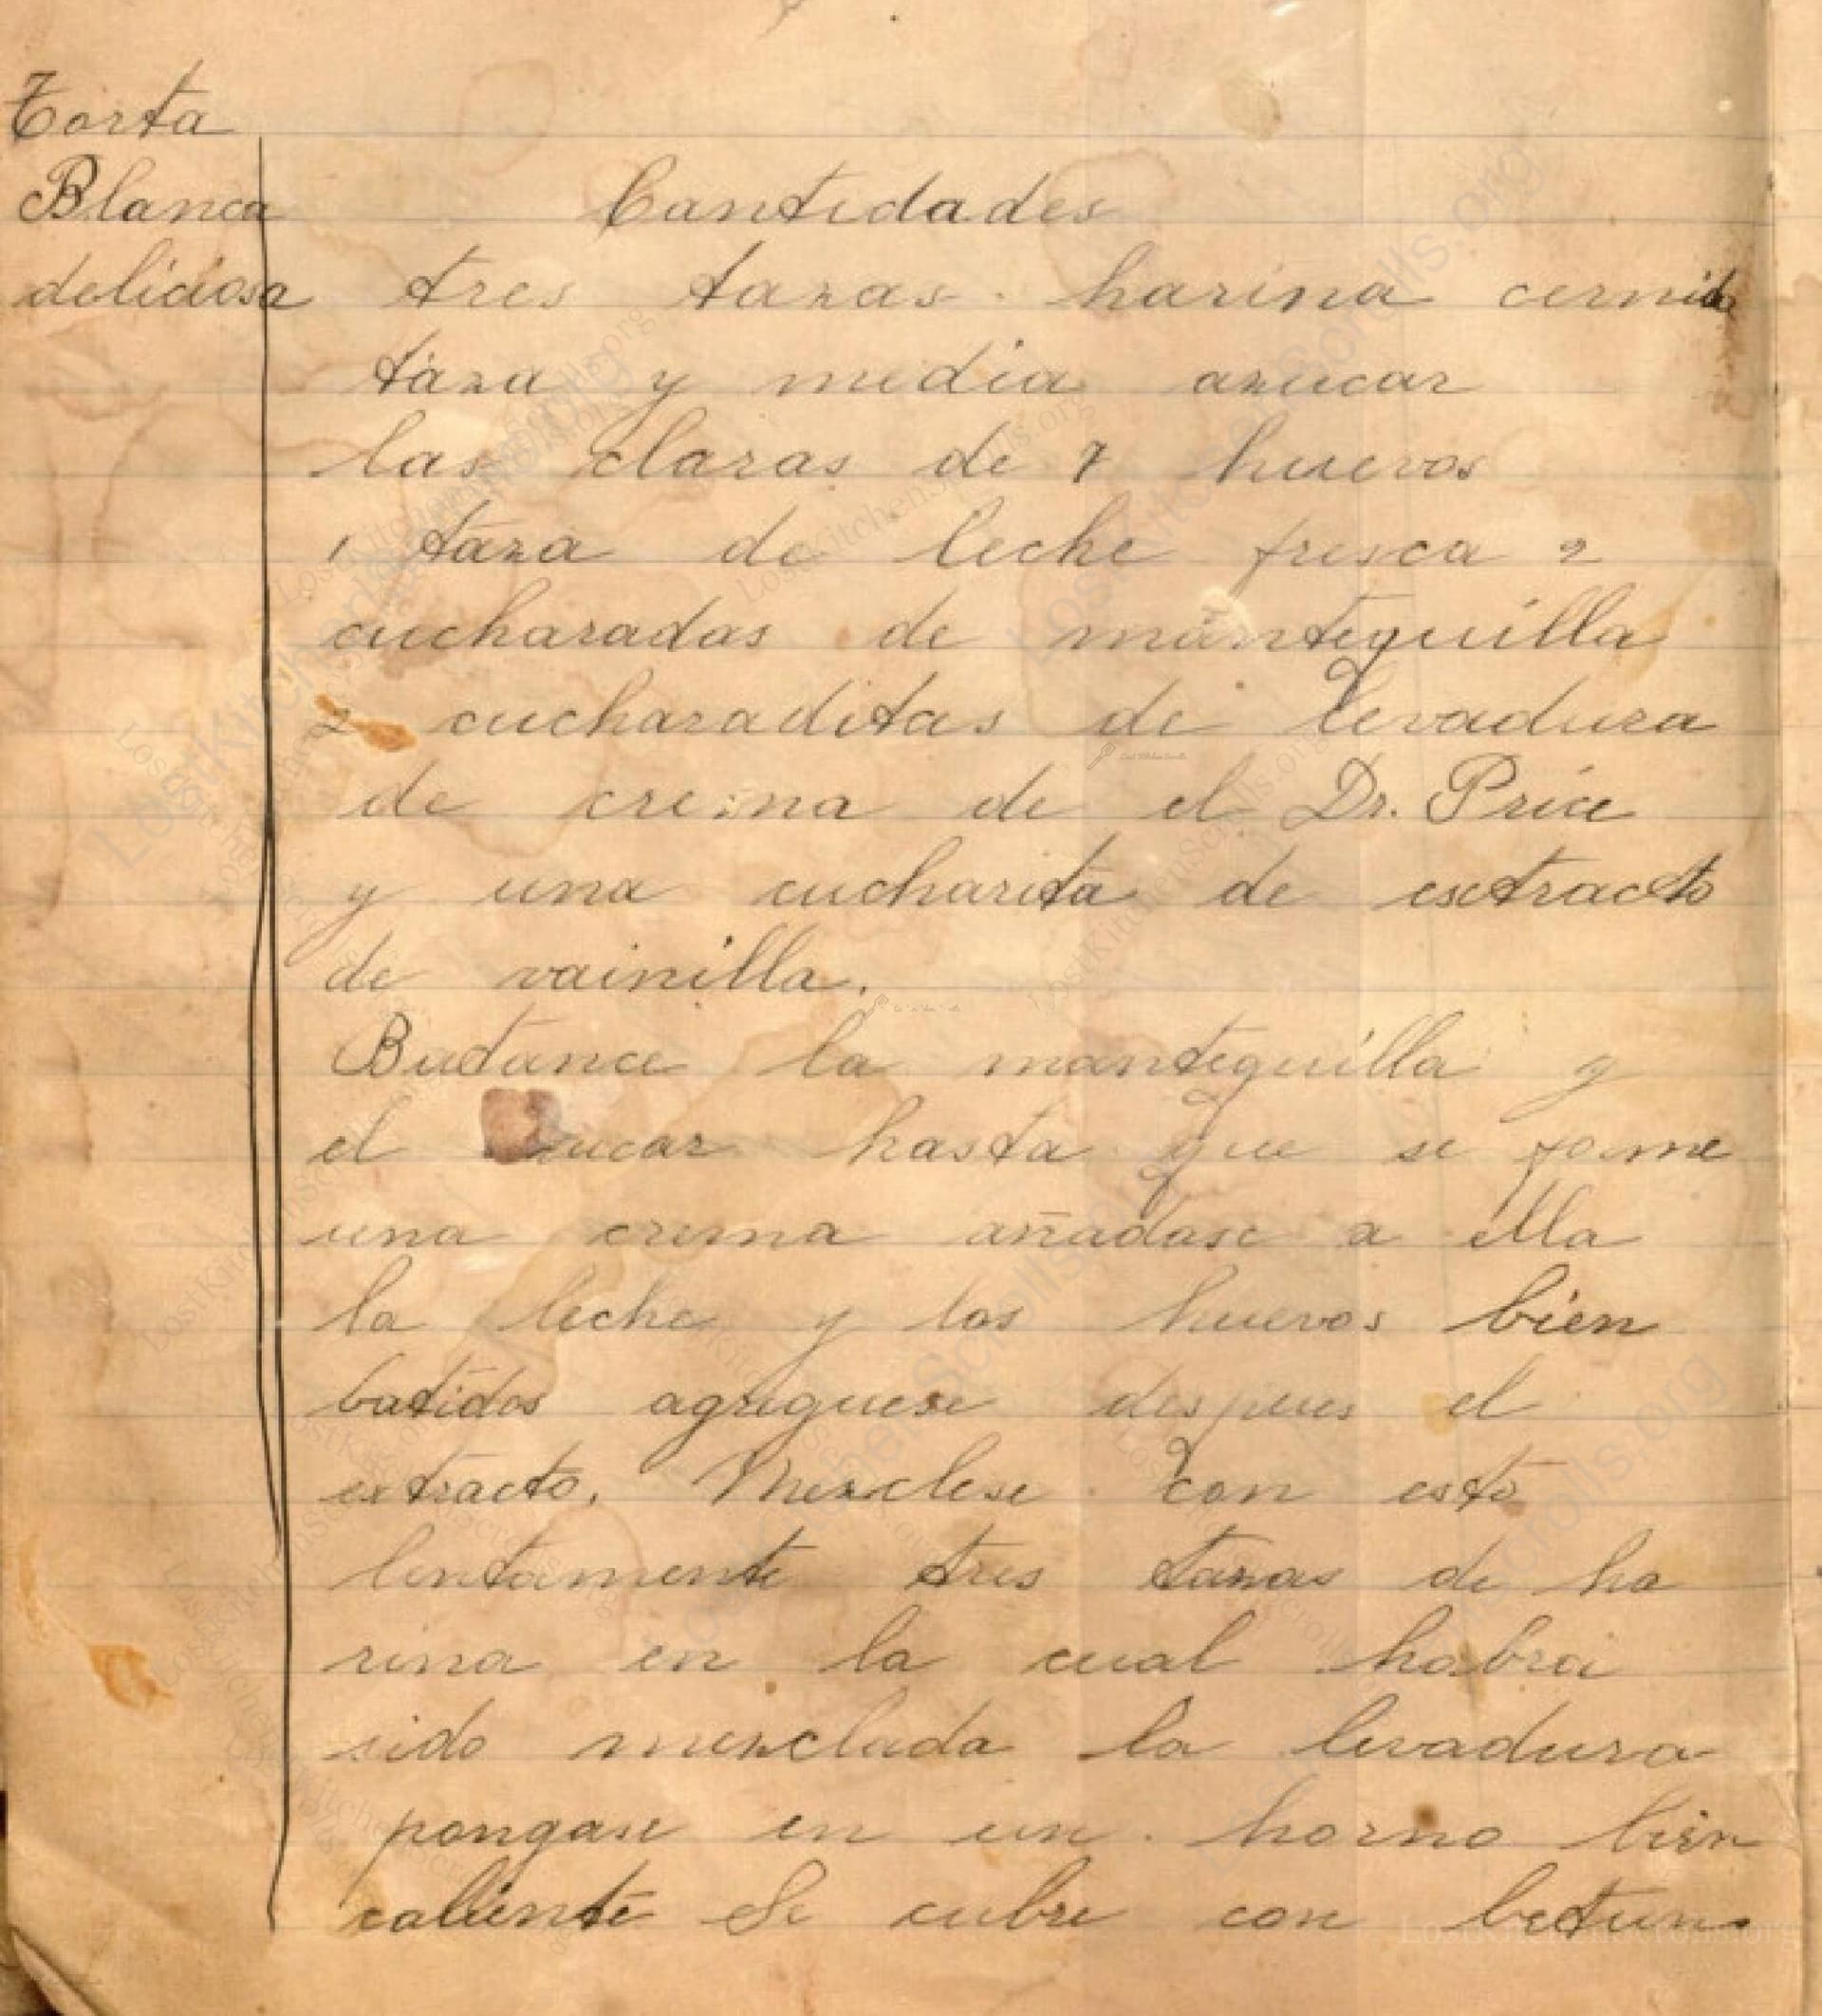 Torta
Blanca
deliciosa
Cantidades
tres tazas harina cernida
taza y media azucar
las claras de 7 huevos
1 taza de leche fresca 2
cucharadas de mantequilla
2 cucharaditas de levadura
de crema de el Dr. Price
y una cucharita de esctracto
de vainilla.
Batance la mantequilla y
el azucar hasta que se forme
una crema añadase a ella
la leche y los huevos bien
batidos agreguese despues el
extracto. Mezclese con esto
lentamente tres tazas de ha
rina en la cual habra
sido mezclada la levadura
pongase en un horno bien
caliente Se cubre con betun.
LostKitchenScrolls.org